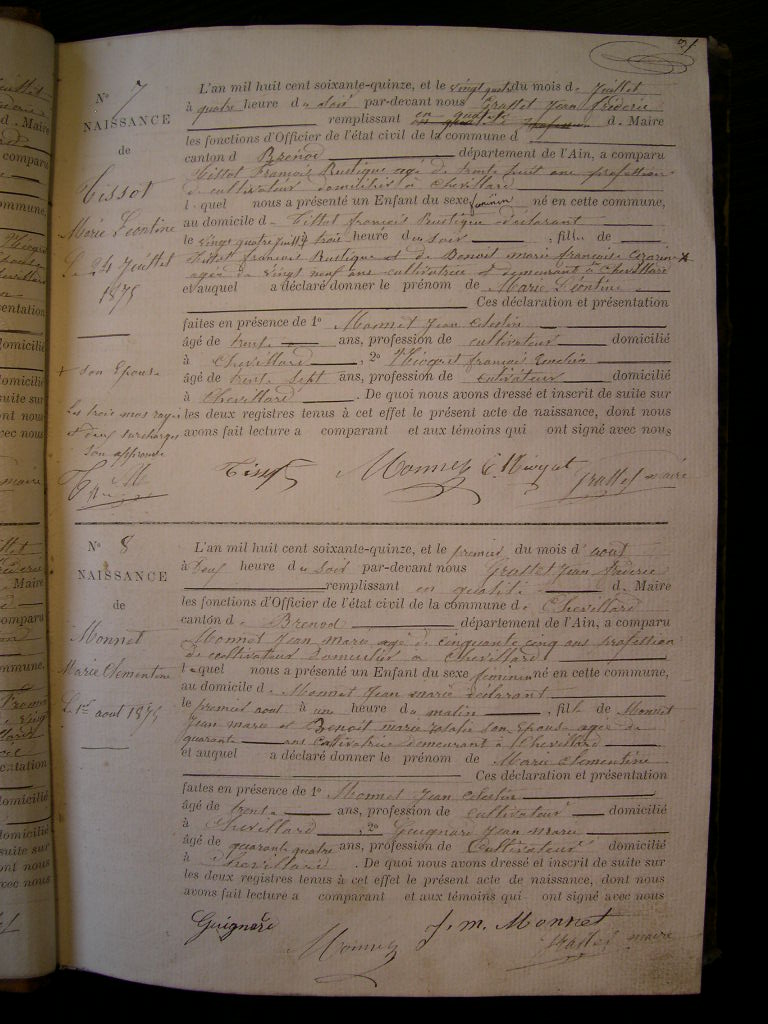 N° 7
NAISSANCE
de
Tissot
Marie Léontine
Le 24 Juillet
1875
+ son Epouse
Les trois mots rayés
et deux surcharges
son approuvé
L'an mil huit cent soixante-quinze, et le vingt quatre du mois de Juillet
à quatre heure du soir par-devant nous Grasset Jean Frédéric
remplissant en qualité d. Maire
les fonctions d'Officier de l'état civil de la commune d
canton d. Brénod département de l'Ain, a comparu
Tissot François Rustique agé de trente huit ans profession
de cultivateur domicilié à Chevillard
l.quel nous a présenté un Enfant du sexe féminin né en cette commune,
au domicile d. Tissot françois Rustique déclarant
le vingt quatre Juillet trois heure du soir , fille de
Tissot françois Rustique et de Benoit marie françoise +
agée de vingt neuf ans cultivatrice et demeurant à Chevillard
et auquel a déclaré donner le prénom de Marie Léontine
Ces déclaration et présentation
faites en présence de 1° Monnet Jean Célestin
âgé de trente ans, profession de cultivateur domicilié
à Chevillard , 2° françois
âgé de trente sept ans, profession de cultivateur domicilié
à Chevillard . De quoi nous avons dressé et inscrit de suite sur
les deux registres tenus à cet effet le présent acte de naissance, dont nous
avons fait lecture a comparant et aux témoins qui ont signé avec nous
Tissot Monnet Grasset maire
N° 8
NAISSANCE
de
Monnet
Marie Clementine
Le 1er aout 1875
L'an mil huit cent soixante-quinze, et le premier du mois d' aout
à deux heure du soir par-devant nous Grasset Jean Frédéric
remplissant en qualité d. Maire
les fonctions d'Officier de l'état civil de la commune d. Chevillard
canton d. Brenod département de l'Ain, a comparu
Monnet Jean marie agé de cinquante cinq ans profession
de cultivateur domicilié à Chevillard
l.quel nous a présenté un Enfant du sexe féminin né en cette commune,
au domicile d. Monnet Jean marie déclarant
le premier aout à une heure du matin , fille de Monnet
Jean marie et Benoit marie son Epouse agée de
quarante ans cultivatrice demeurant à Chevillard
et auquel a déclaré donner le prénom de Marie Clementine
Ces déclaration et présentation
faites en présence de 1° Monnet Jean Célestin
âgé de trente ans, profession de cultivateur domicilié
à Chevillard , 2° Guignard Jean Marie
âgé de quarante quatre ans, profession de Cultivateur domicilié
à Chevillard . De quoi nous avons dressé et inscrit de suite sur
les deux registres tenus à cet effet le présent acte de naissance, dont nous
avons fait lecture a comparant et aux témoins qui ont signé avec nous
Guignard J. m. Monnet
Monnet Grasset maire